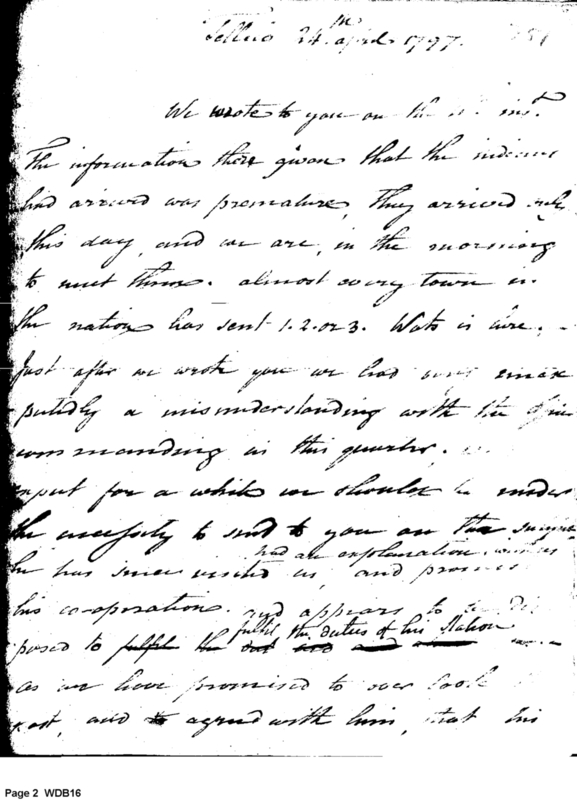 Tellico 24th april 1797.
We wrote to you on the inst.
The information there given that the indians
had arrived was premature, They arrived only
this day, and we are, in the morning
to meet them. almost every town in
the nation has sent 1. 2. or 3. Wats is here.
Just after we wrote you we had very unex
pectedly a misunderstanding with the
commanding in this quarter.
expect for a while we should be under
the necessity to send to you on the
had an explanation with us
he has since visited us, and
his co-operation. and appears to be dis
fulfil the duties of his Station
posed to fulfil the
as we have promised to over look
past, and to agreed with him, that his
Page 2 WDB16